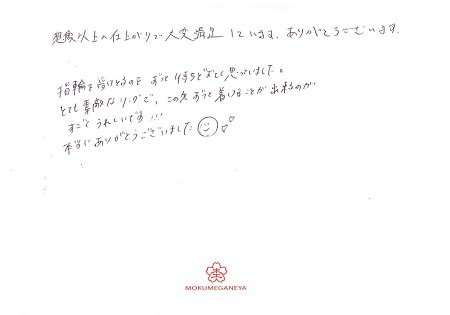 想像以上の仕上がりで大変満足しています。ありがとうございます。
指輪を受けとるのをずっと待ちどおしく思っていました。
とても素敵なリングで、この先ずっと着けることが出来るのが
すごくうれしいです!!!
本当にありがとうございました
MOKUMEGANEYA